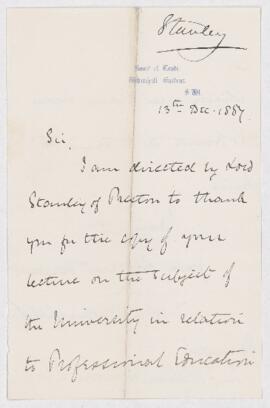 Stanley
Board of Trade
Whitehall Gardens
S.W.
13th Dec. 1887.
Sir,
I am directed by Lord
Stanley of Preston to thank
you for the copy of your
lecture on the subject of
the University in relation
to Professional Education